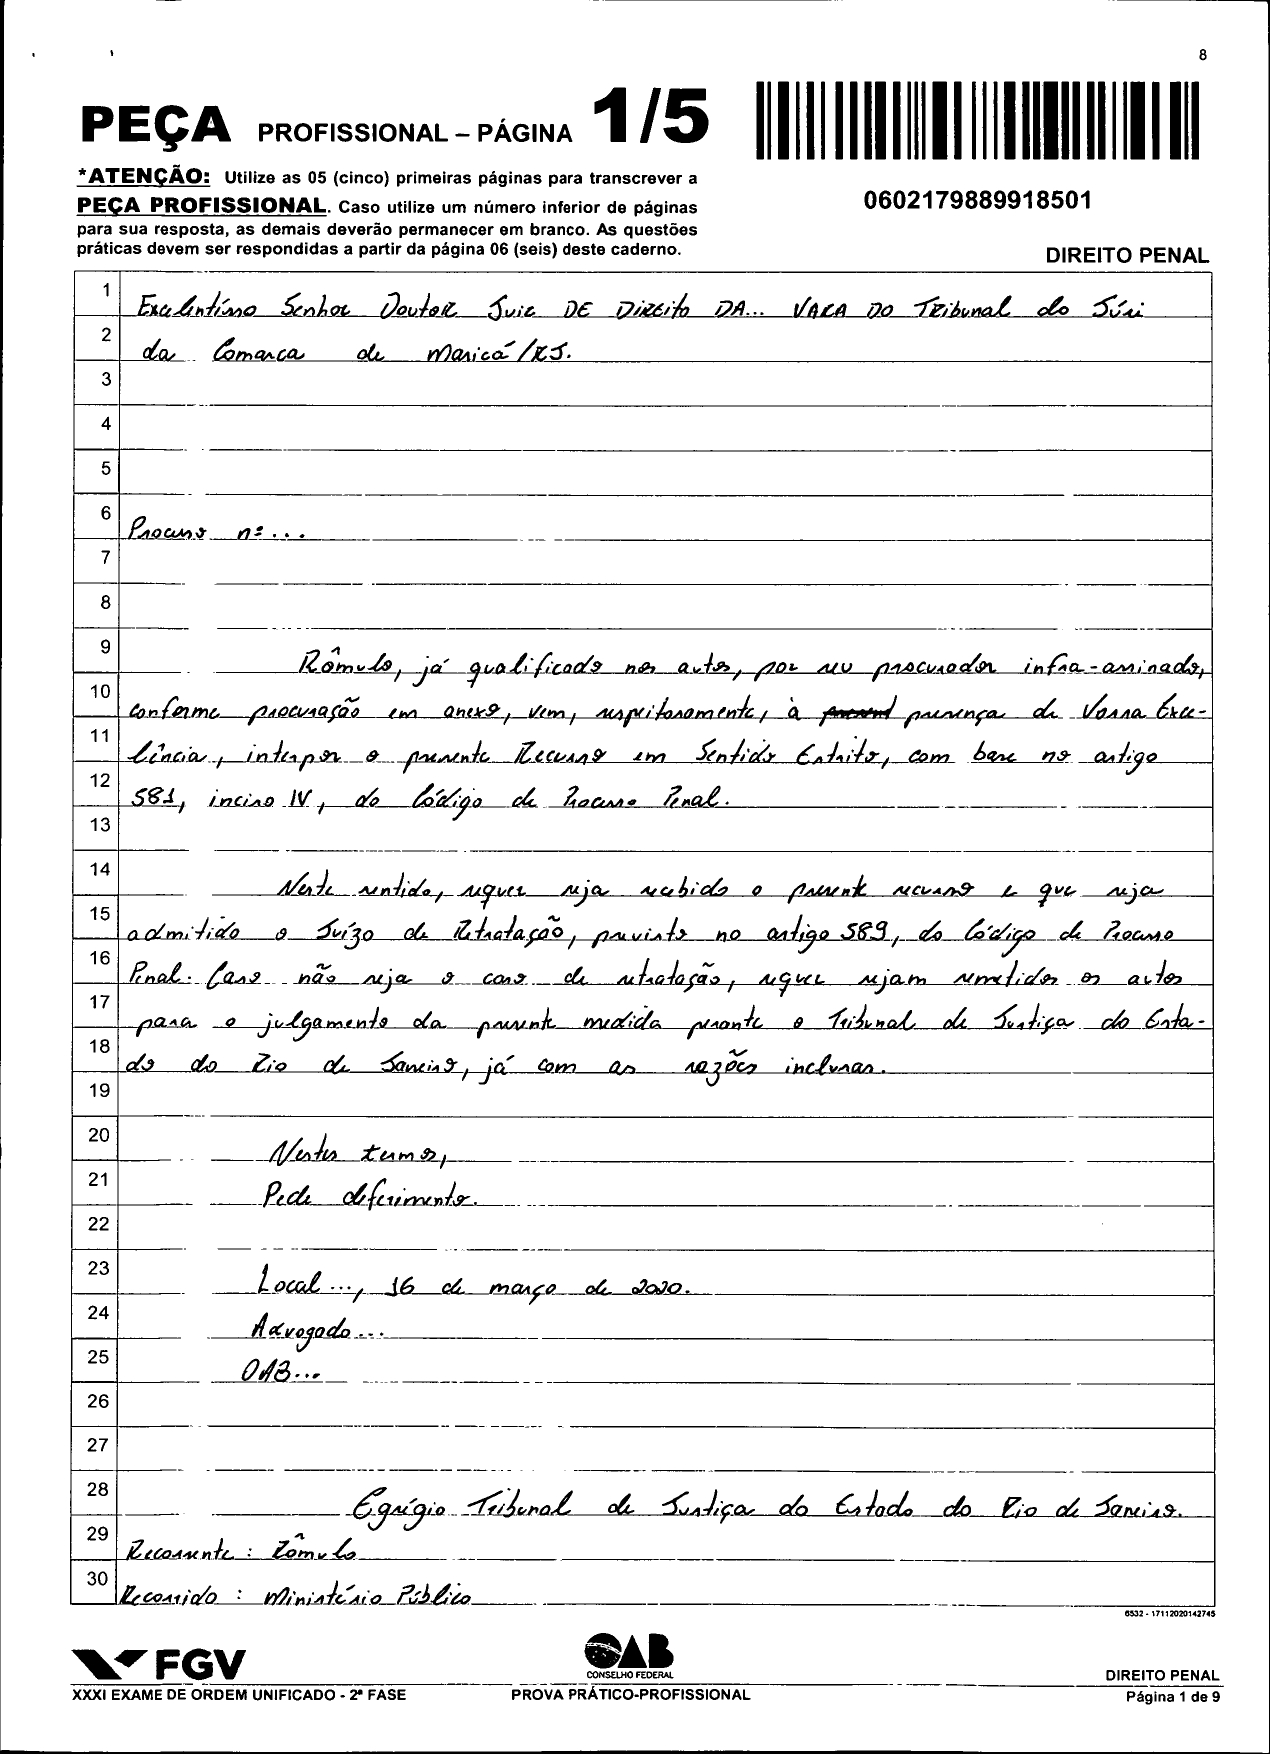 8
PEÇA PROFISSIONAL – PÁGINA 1/5
*ATENÇÃO: Utilize as 05 (cinco) primeiras páginas para transcrever a
PEÇA PROFISSIONAL. Caso utilize um número inferior de páginas
para sua resposta, as demais deverão permanecer em branco. As questões
práticas devem ser respondidas a partir da página 06 (seis) deste caderno.
0602179889918501
DIREITO PENAL
1 Excelentíssimo Senhor Doutor Juiz DE Direito DA... VARA DO Tribunal do Júri
2 da Comarca de Maricá/RJ.
3
4
5
6 Processo nº...
7
8
9 Rômulo, já qualificado nos autos, por seu procurador infra-assinado,
10 conforme procuração em anexo, vem, respeitosamente, à presença de Vossa Exce-
11 lência, interpor o presente Recurso em Sentido Estrito, com base no artigo
12 581, inciso IV, do Código de Processo Penal.
13
14 Neste sentido, requer seja recebido o presente recurso e que seja
15 admitido o Juízo de Retratação, previsto no artigo 589, do Código de Processo
16 Penal. Caso não seja o caso de retratação, requer sejam remetidos os autos
17 para o julgamento da presente medida perante o Tribunal de Justiça do Esta-
18 do do Rio de Janeiro, já com as razões inclusas.
19
20 Nestes termos,
21 Pede deferimento.
22
23 Local..., 16 de março de 2020.
24 Advogado...
25 OAB...
26
27
28 Egrégio Tribunal de Justiça do Estado do Rio de Janeiro.
29 Recorrente: Rômulo
30 Recorrido: Ministério Público
6532 - 17112020142745
FGV
OAB
CONSELHO FEDERAL
DIREITO PENAL
XXXI EXAME DE ORDEM UNIFICADO - 2ª FASE
PROVA PRÁTICO-PROFISSIONAL
Página 1 de 9